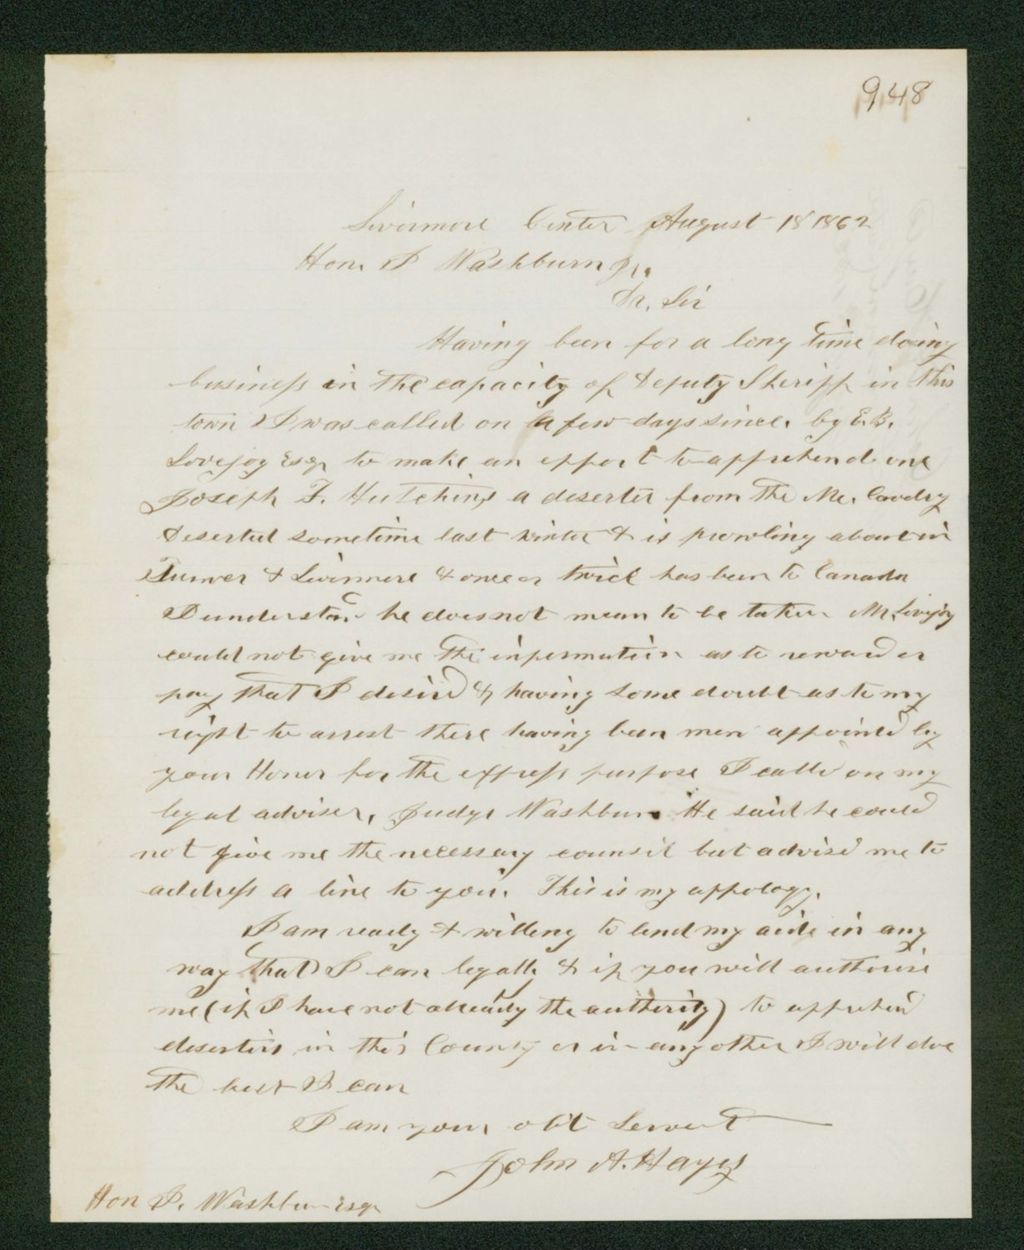 948
Livermore Center August 18 1862
Hon. I Washburn Jr.
Dr. Sir
Having been for a long time doing
business in the capacity of Deputy Sheriff in this
town I was called on a few days since, by E.B.
Lovejoy Esqr to make an effort to apprehend one
Joseph F. Hutchins a deserter from the Me. Cavalry
deserted sometime last winter & is prowling about in
Turner & Livermore & once or twice has been to Canada
I understand he does not mean to be taken Mr. Lovejoy
could not give me the information as to reward or
pay that I desired & having some doubt as to my
right to arrest there having been men appointed by
your Honor for the express purpose I called on my
legal adviser, Judge Washburn He said he could
not give me the necessary council but advised me to
address a line to you. This is my appology.
I am ready & willing to lend my aide in any
way that I can legally & if you will authorise
me (if I have not already the authority) to apprehend
deserters in this County or in any other I will doe
the best I can
I am your obt Servant
John A. Hayes
Hon I. Washburn Esqr